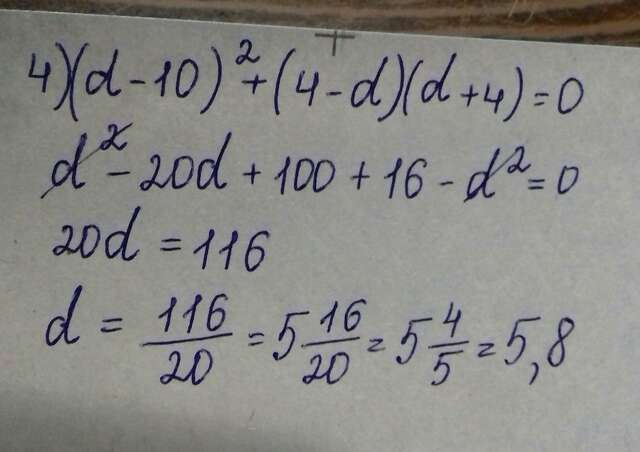 4) (d - 10)² + (4 - d)(d + 4) = 0
d² - 20d + 100 + 16 - d² = 0
20d = 116
d = 116/20 = 5 16/20 = 5 4/5 = 5,8